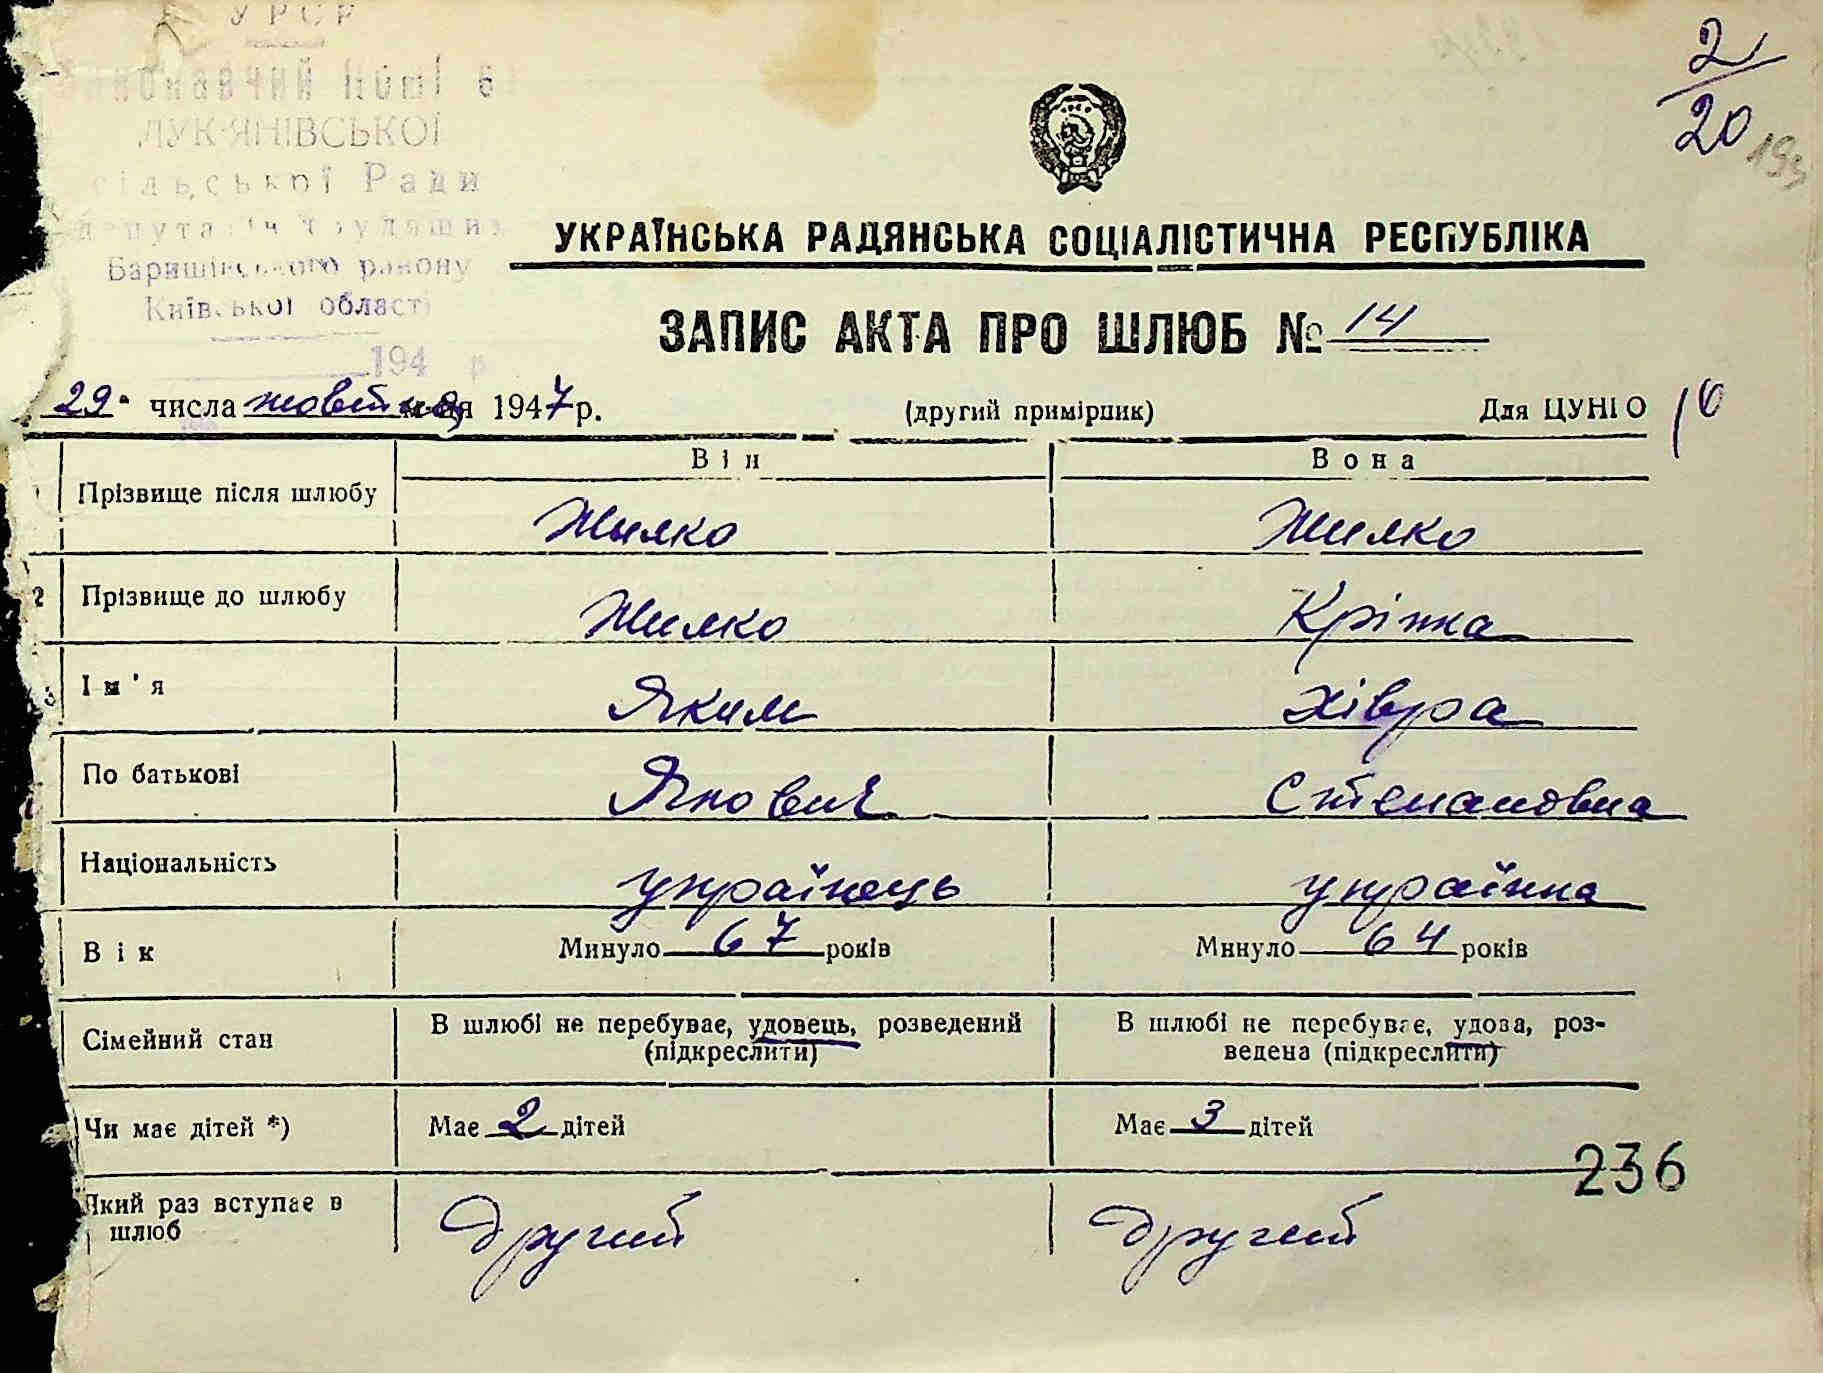 УРСР
Виконавчий Комітет
ЛУК'ЯНІВСЬКОЇ
сільської Ради
депутатів трудящих
Баришівського району
Київської області
194 р.
2/20
УКРАЇНСЬКА РАДЯНСЬКА СОЦІАЛІСТИЧНА РЕСПУБЛІКА
ЗАПИС АКТА ПРО ШЛЮБ № 14
29 числа жовтня м-ця 1947 р. (другий примірник) Для ЦУНГО 16
Він Вона
1 Прізвище після шлюбу Жилко Жилко
2 Прізвище до шлюбу Жилко Кріпка
3 Ім'я Яким Хівра
По батькові Якович Степановна
Національність українець українка
Вік Минуло 67 років Минуло 64 років
Сімейний стан В шлюбі не перебуває, удовець, розведений (підкреслити) В шлюбі не перебуває, удова, роз-
ведена (підкреслити)
Чи має дітей *) Має 2 дітей Має 3 дітей
236
Який раз вступає в шлюб другий другий